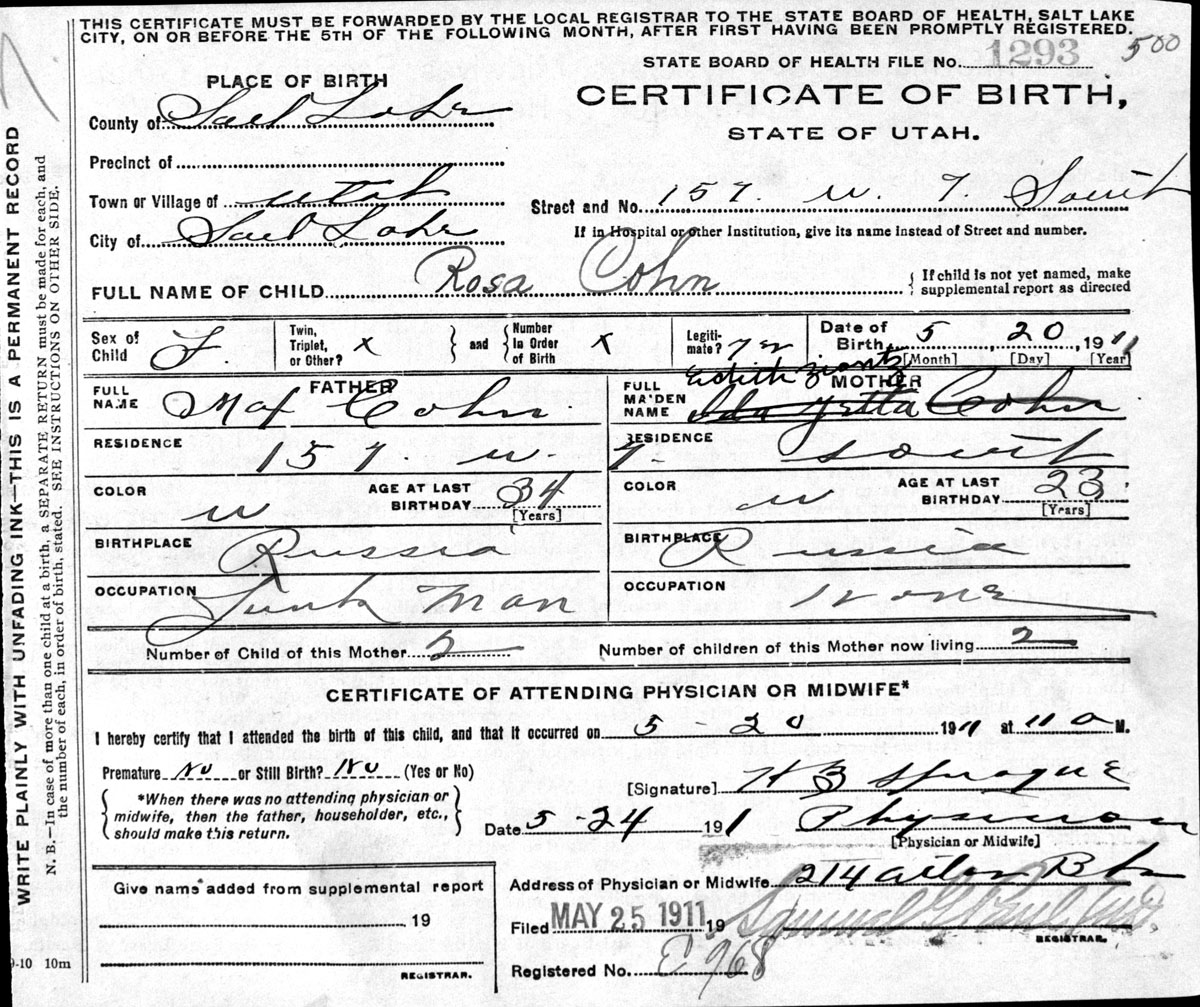 THIS CERTIFICATE MUST BE FORWARDED BY THE LOCAL REGISTRAR TO THE STATE BOARD OF HEALTH, SALT LAKE
CITY, ON OR BEFORE THE 5TH OF THE FOLLOWING MONTH, AFTER FIRST HAVING BEEN PROMPTLY REGISTERED.
STATE BOARD OF HEALTH FILE No. 1293 500
PLACE OF BIRTH
CERTIFICATE OF BIRTH,
STATE OF UTAH.
County of Salt Lake
Precinct of
Town or Village of Utah
Street and No. 157. W. 7. South
City of Salt Lake
If in Hospital or other Institution, give its name instead of Street and number.
FULL NAME OF CHILD Rosa Cohn
{ If child is not yet named, make
supplemental report as directed
Sex of Child F.
Twin, Triplet, or Other? X
} and {
Number In Order of Birth X
Legiti-mate? yes
Date of Birth 5, 20, 1911
[Month] [Day] [Year]
FATHER
FULL NAME Max Cohn
MOTHER
FULL MAIDEN NAME Edith
Ida Yetta Cohn
RESIDENCE 157. W. 7.
RESIDENCE South
COLOR W
AGE AT LAST BIRTHDAY 34
[Years]
COLOR W
AGE AT LAST BIRTHDAY 23
[Years]
BIRTHPLACE Russia
BIRTHPLACE Russia
OCCUPATION Junk Man
OCCUPATION None
Number of Child of this Mother 2
Number of children of this Mother now living 2
CERTIFICATE OF ATTENDING PHYSICIAN OR MIDWIFE*
I hereby certify that I attended the birth of this child, and that it occurred on 5 - 20 1911 at 11 a M.
Premature No or Still Birth? No (Yes or No)
[Signature] H B Sprague
{ *When there was no attending physician or
midwife, then the father, householder, etc.,
should make this return. }
Date 5 - 24 191 1 Physician
[Physician or Midwife]
Give name added from supplemental report
19
REGISTRAR.
Address of Physician or Midwife 214
Filed MAY 25 1911 19
REGISTRAR.
Registered No. E 968
WRITE PLAINLY WITH UNFADING INK—THIS IS A PERMANENT RECORD
N. B.—In case of more than one child at a birth, a SEPARATE RETURN must be made for each, and
the number of each, in order of birth, stated. SEE INSTRUCTIONS ON OTHER SIDE.
9-10 10m